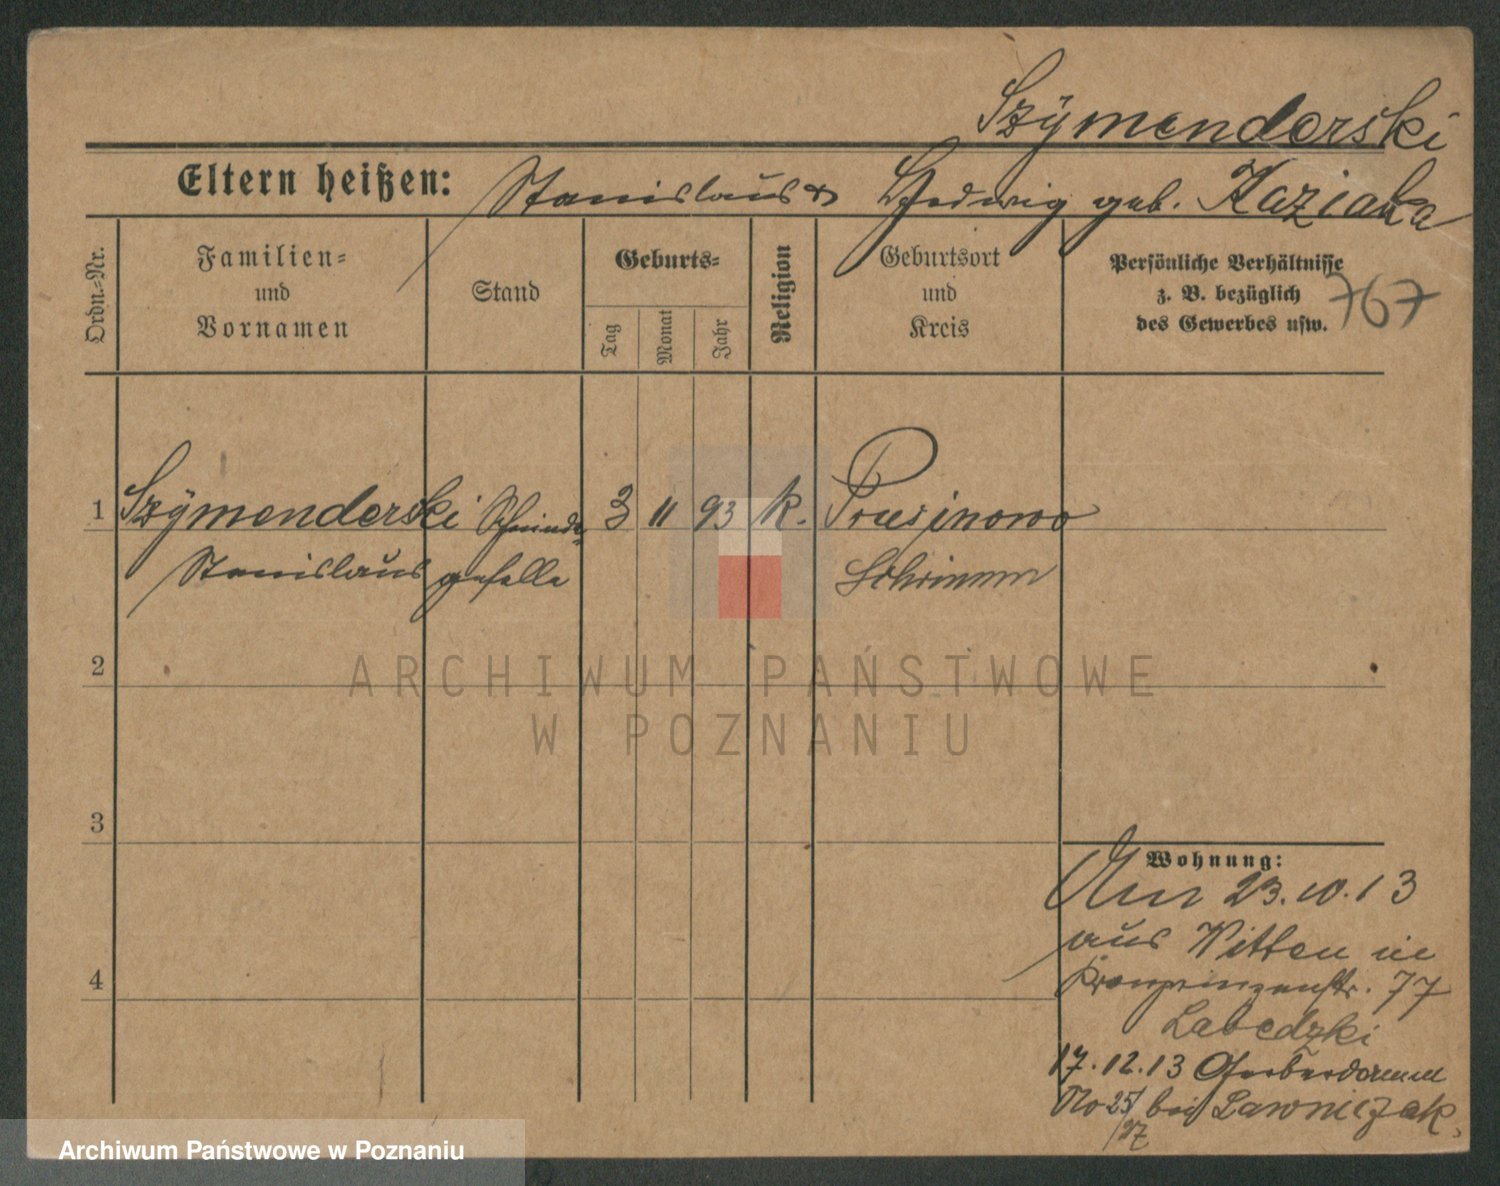 Szÿmenderski
Eltern heißen: Stanislaus & Hedwig geb. Kaziaka
Ordn.-Nr.
Familien-
und
Vornamen
Stand
Geburts-
Tag
Monat
Jahr
Religion
Geburtsort
und
Kreis
Persönliche Verhältnisse
z. B. bezüglich
des Gewerbes usw.
767
1 Szÿmenderski Schneider- 3 11 93 k. Prusinowo
Stanislaus geselle Schrimm
2
3
4
Wohnung:
Am 23.10.13
aus Witten in
Kronprinzenstr. 77
Labedzki
17.12.13 Gerberdamm
No 25/27 bei Lawniczak.
ARCHIWUM PAŃSTWOWE
W POZNANIU
Archiwum Państwowe w Poznaniu